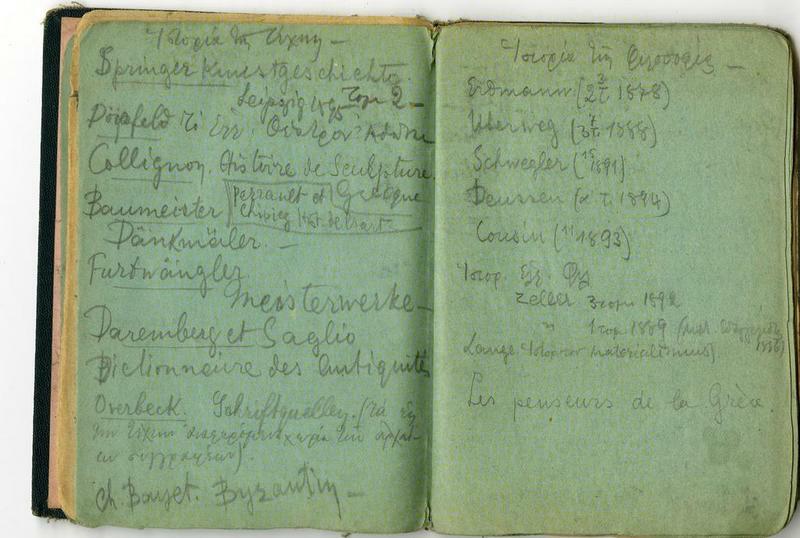 Ἱστορία τῆς τέχνης —
Springer Kunstgeschichte.
Leipzig 1895 τομ 2 —
Dörpfeld τὸ Ἑλλ. Θέατρον
Collignon, Histoire de Sculpture
Grecque
Baumeister
Perrault et
Chipiez Hist. de l'art
Dänkmäler. —
Furtwängler
Meisterwerke —
Daremberg et Saglio
Dictionnaire des Antiquités
Overbeck. Schriftquellen. (τὰ εἰς
τὴν τέχνην ἀναφερόμενα χωρία τῶν ἀρχαί-
ων συγγραφέων).
Ch. Bayet. Byzantin —
Ἱστορία τῆς Φιλοσοφίας —
Erdmann (2 τ. 1878)
Uberweg (3 τ. 1888)
Schwegler (1891)
Deussen (α τ. 1894)
Cousin (11 1893)
Ἱστορ. Ἑλλ. Φιλ
Zeller 3 τομ 1892
" 1 τομ 1889
Lange. Materialismus)
Les penseurs de la Grèce.